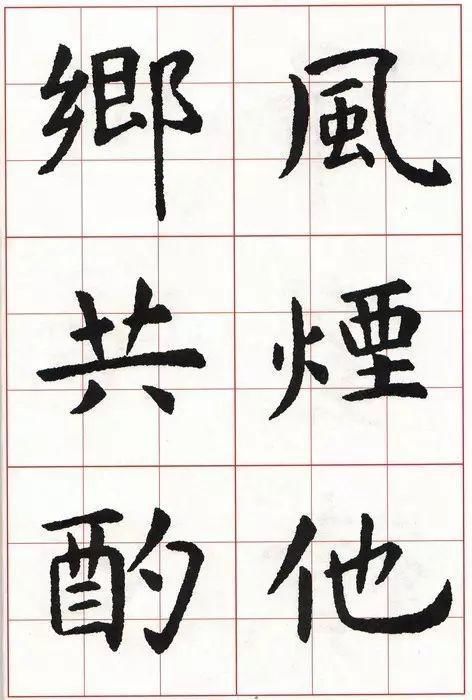 風煙他
鄉共酌